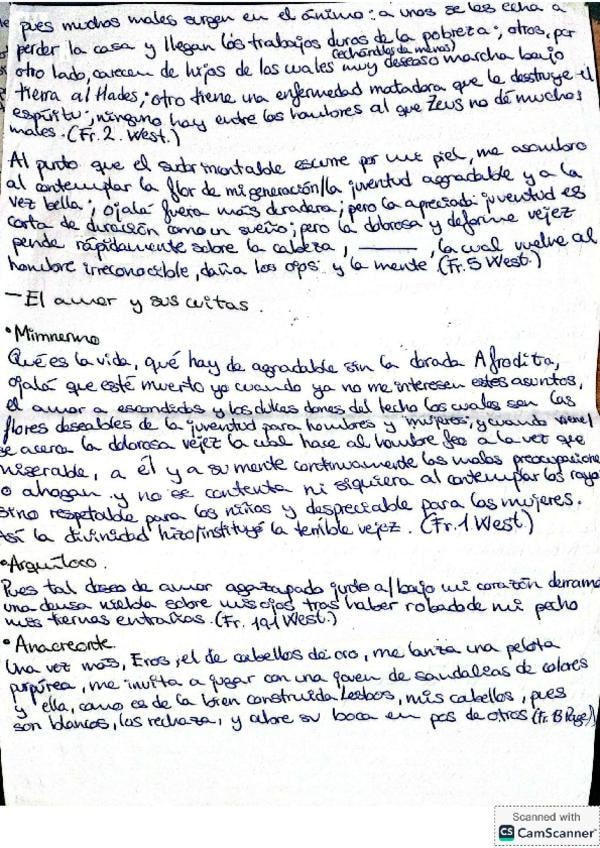 pues muchos males surgen en el ánimo: a unos se les echa a
perder la casa y llegan los trabajos duros de la pobreza; otros, por
(echándolos de menos)
otro lado, carecen de hijos de los cuales muy deseoso marcha bajo
tierra al Hades; otro tiene una enfermedad matadora que le destruye el
espíritu; ninguno hay entre los hombres al que Zeus no dé muchos
males. (Fr. 2. West.)
Al punto que el sudor montable escurre por mi piel, me asombro
al contemplar la flor de mi generación/la juventud agradable y a la
vez bella; ojalá fuera más duradera; pero la apreciada juventud es
corta de duración como un sueño; pero la dolorosa y deforme vejez
pende rápidamente sobre la cabeza, ______, la cual vuelve al
hombre irreconocible, daña los ojos y la mente (Fr. 5 West.)
- El amor y sus cuitas.
• Mimnermo
Qué es la vida, qué hay de agradable sin la dorada Afrodita,
ojalá que esté muerto yo cuando ya no me interesen estos asuntos,
el amor a escondidas y los dulces dones del lecho los cuales son las
flores deseables de la juventud para hombres y mujeres; y cuando viene/
se acerca la dolorosa vejez la cual hace al hombre feo a la vez que
miserable, a él y a su mente continuamente las malas preocupacione
o ahogan y no se contenta ni siquiera al contemplar los rayo
sino respetable para los niños y despreciable para las mujeres.
Así la divinidad hizo/instituyó la terrible vejez. (Fr. 1 West.)
• Arquíloco.
Pues tal deseo de amor agazapado junto a/bajo mi corazón derrama
una densa niebla sobre mis ojos tras haber robado de mi pecho
mis tiernas entrañas. (Fr. 191 West.)
• Anacreonte.
Una vez más, Eros, el de cabellos de oro, me lanza una pelota
purpúrea, me invita a jugar con una joven de sandalias de colores
y ella, como es de la bien construida Lesbos, mis cabellos, pues
son blancos, los rechaza, y abre su boca en pos de otros (Fr. 13 Page)
Scanned with
CS CamScanner